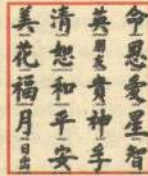 美 清 英 命
花 恕 朋友 恩
福 和 貴 愛
月 平 神 星
日出 安 孝 智